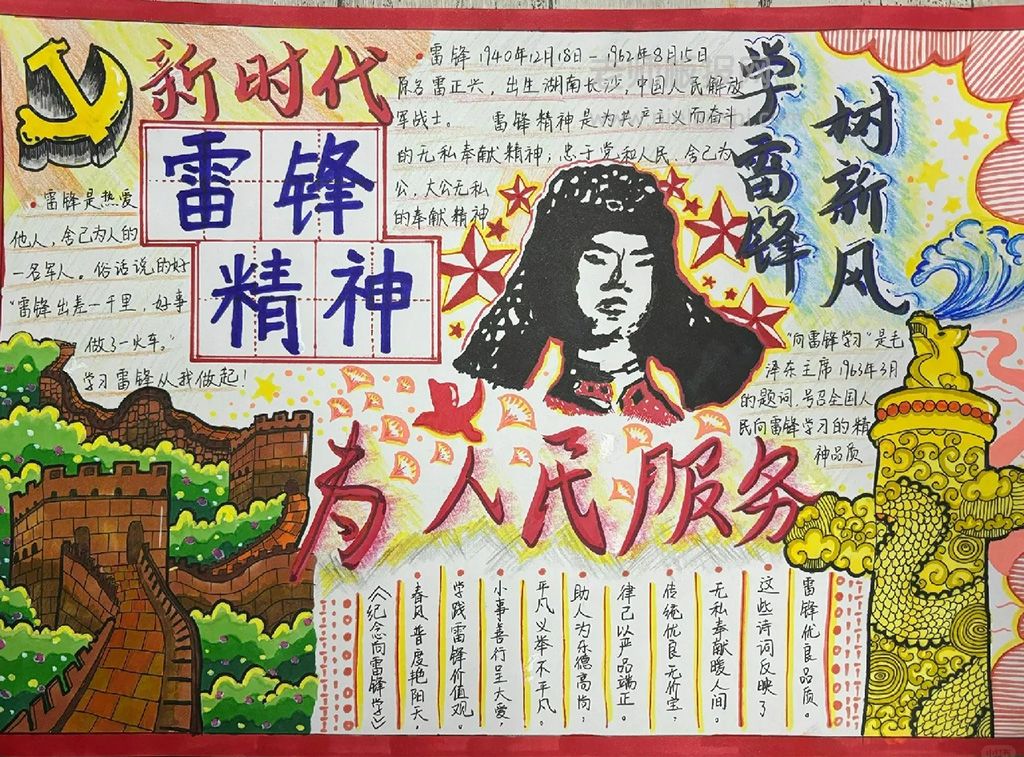 新时代
雷锋
精神
·雷锋 1940年12月18日—1962年8月15日
原名雷正兴，出生湖南长沙，中国人民解放
军战士。 雷锋精神是为共产主义而奋斗
的无私奉献精神；忠于党和人民、舍己为
公，大公无私
的奉献精神
学雷锋
树新风
·雷锋是热爱
他人，舍己为人的
一名军人。俗话说的好
“雷锋出差一千里，好事
做了一火车。”
学习雷锋从我做起！
“向雷锋学习”是毛
泽东主席1963年3月
的题词，号召全国人
民向雷锋学习的精
神品质
为人民服务
《纪念向雷锋学》
春风普度艳阳天，
学践雷锋价值观。
小事善行呈大爱，
平凡义举不平凡。
助人为乐德高尚，
律己以严品端正。
传统优良无价宝，
无私奉献暖人间。
这些诗词反映了
雷锋优良品质。
小红书